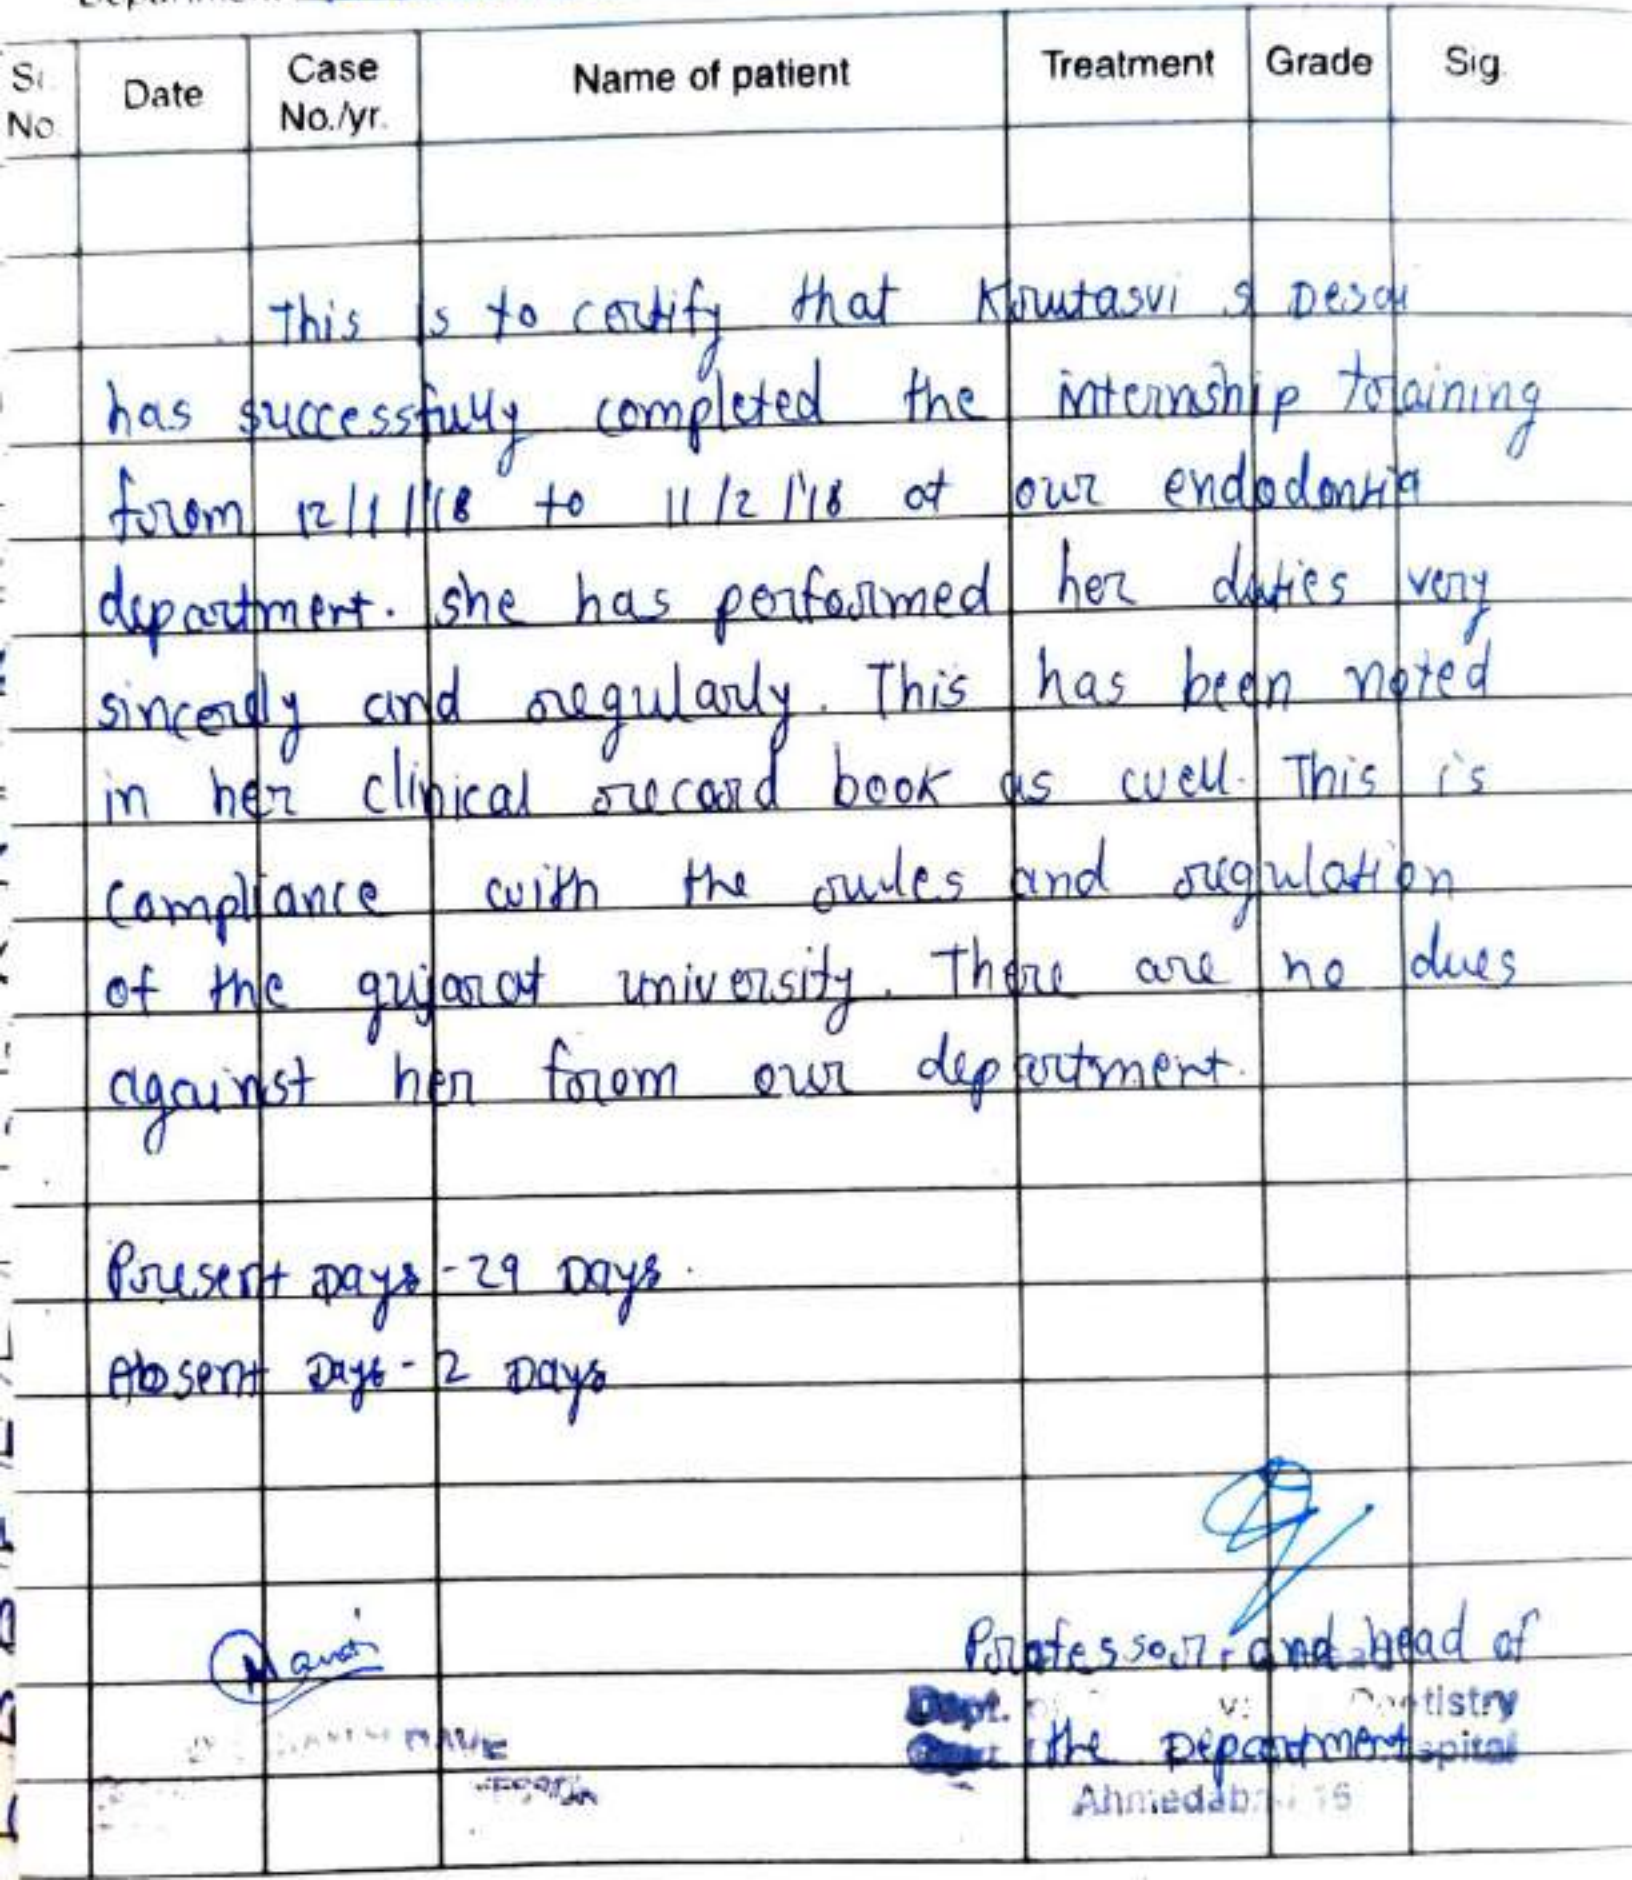 Sr. No Date Case No./yr. Name of patient Treatment Grade Sig.
This is to certify that Krutasvi S Desai
has successfully completed the internship training
from 12/1/'18 to 11/2/'18 at our endodontia
department. she has performed her duties very
sincerely and regularly. This has been noted
in her clinical record book as well. This is
compliance with the rules and regulation
of the gujarat university. There are no dues
against her from our department.
Present Days - 29 Days.
Absent Days - 2 Days
Professor and head of
Dept. Dentistry
the Department
Ahmedab